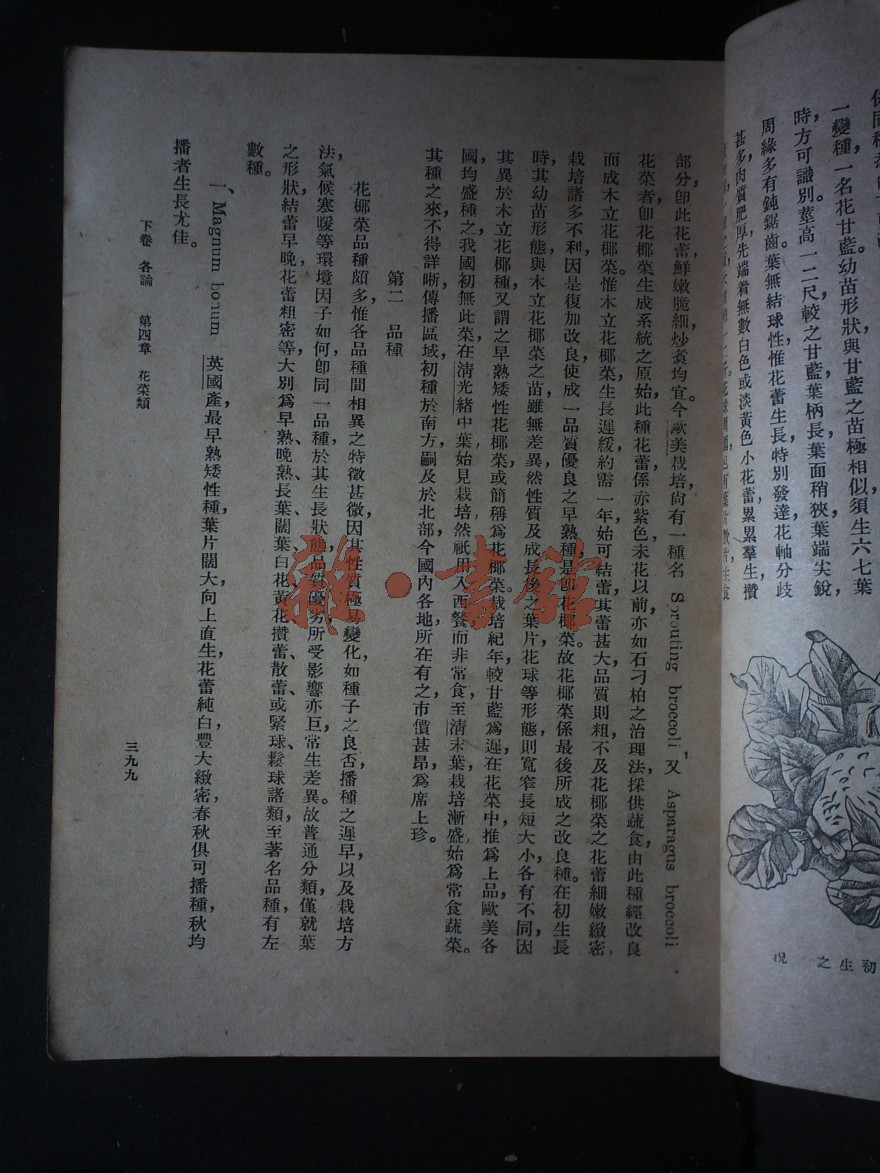 一變種一名花甘藍幼苗形狀與甘藍之苗極相似須生六七葉
時方可識別莖高一二尺較之甘藍葉柄長葉面稍狹葉端尖銳，
周緣多有鈍鋸齒。葉無結球性惟花蕾生長特別發達花軸分歧
甚多肉質肥厚先端着無數白色或淡黃色小花蕾累累羣生，攢
初生之
部分卽此花蕾鮮嫩脆細炒煮均宜。今歐美栽培尚有一種名 Sprouting broccoli，又 Asparagus broccoli
花菜者卽花椰菜生成系統之原始此種花蕾係赤紫色未花以前亦如石刁柏之治理法採供蔬食，由此種經改良
而成木立花椰菜。惟木立花椰菜生長遲緩約需一年始可結蕾其蕾甚大品質則粗不及花椰菜之花蕾細嫩緻密，
栽培諸多不利，因是復加改良，使成一品質優良之早熟種，是卽花椰菜。故花椰菜係最後所成之改良種。在初生長
時，其幼苗形態與木立花椰菜之苗雖無差異然性質及成長後之葉片花球等形態則寬窄長短大小，各有不同，因
其異於木立花椰種，又謂之早熟矮性花椰菜，或簡稱爲花椰菜。栽培紀年，較甘藍爲遲在花菜中推爲上品，歐美各
國，均盛種之，我國初無此菜在清光緒中葉始見栽培然祇用入西餐，而非常食，至清末葉，栽培漸盛始爲常食蔬菜。
其種之來，不得詳晰，傳播區域，初種於南方，嗣及於北部，今國內各地所在有之市價甚昂爲席上珍。
第二　品種
花椰菜品種頗多惟各品種間相異之特徵甚微，因其性質極易變化，如種子之良否，播種之遲早，以及栽培方
法，氣候寒暖等環境因子如何，卽同一品種於其生長狀態品質優劣所受影響亦巨常生差異。故普通分類，僅就葉
之形狀，結蕾早晚，花蕾粗密等，大別爲早熟、晚熟、長葉、闊葉、白花、黃花、攢蕾、散蕾、或緊球、鬆球諸類，至著名品種，有左
數種。
一、Magnum bonum　英國產，最早熟矮性種，葉片闊大向上直生，花蕾純白豐大緻密，春秋俱可播種，秋均
播者生長尤佳。
下卷　各論　第四章　花菜類
三九九
雜·書館